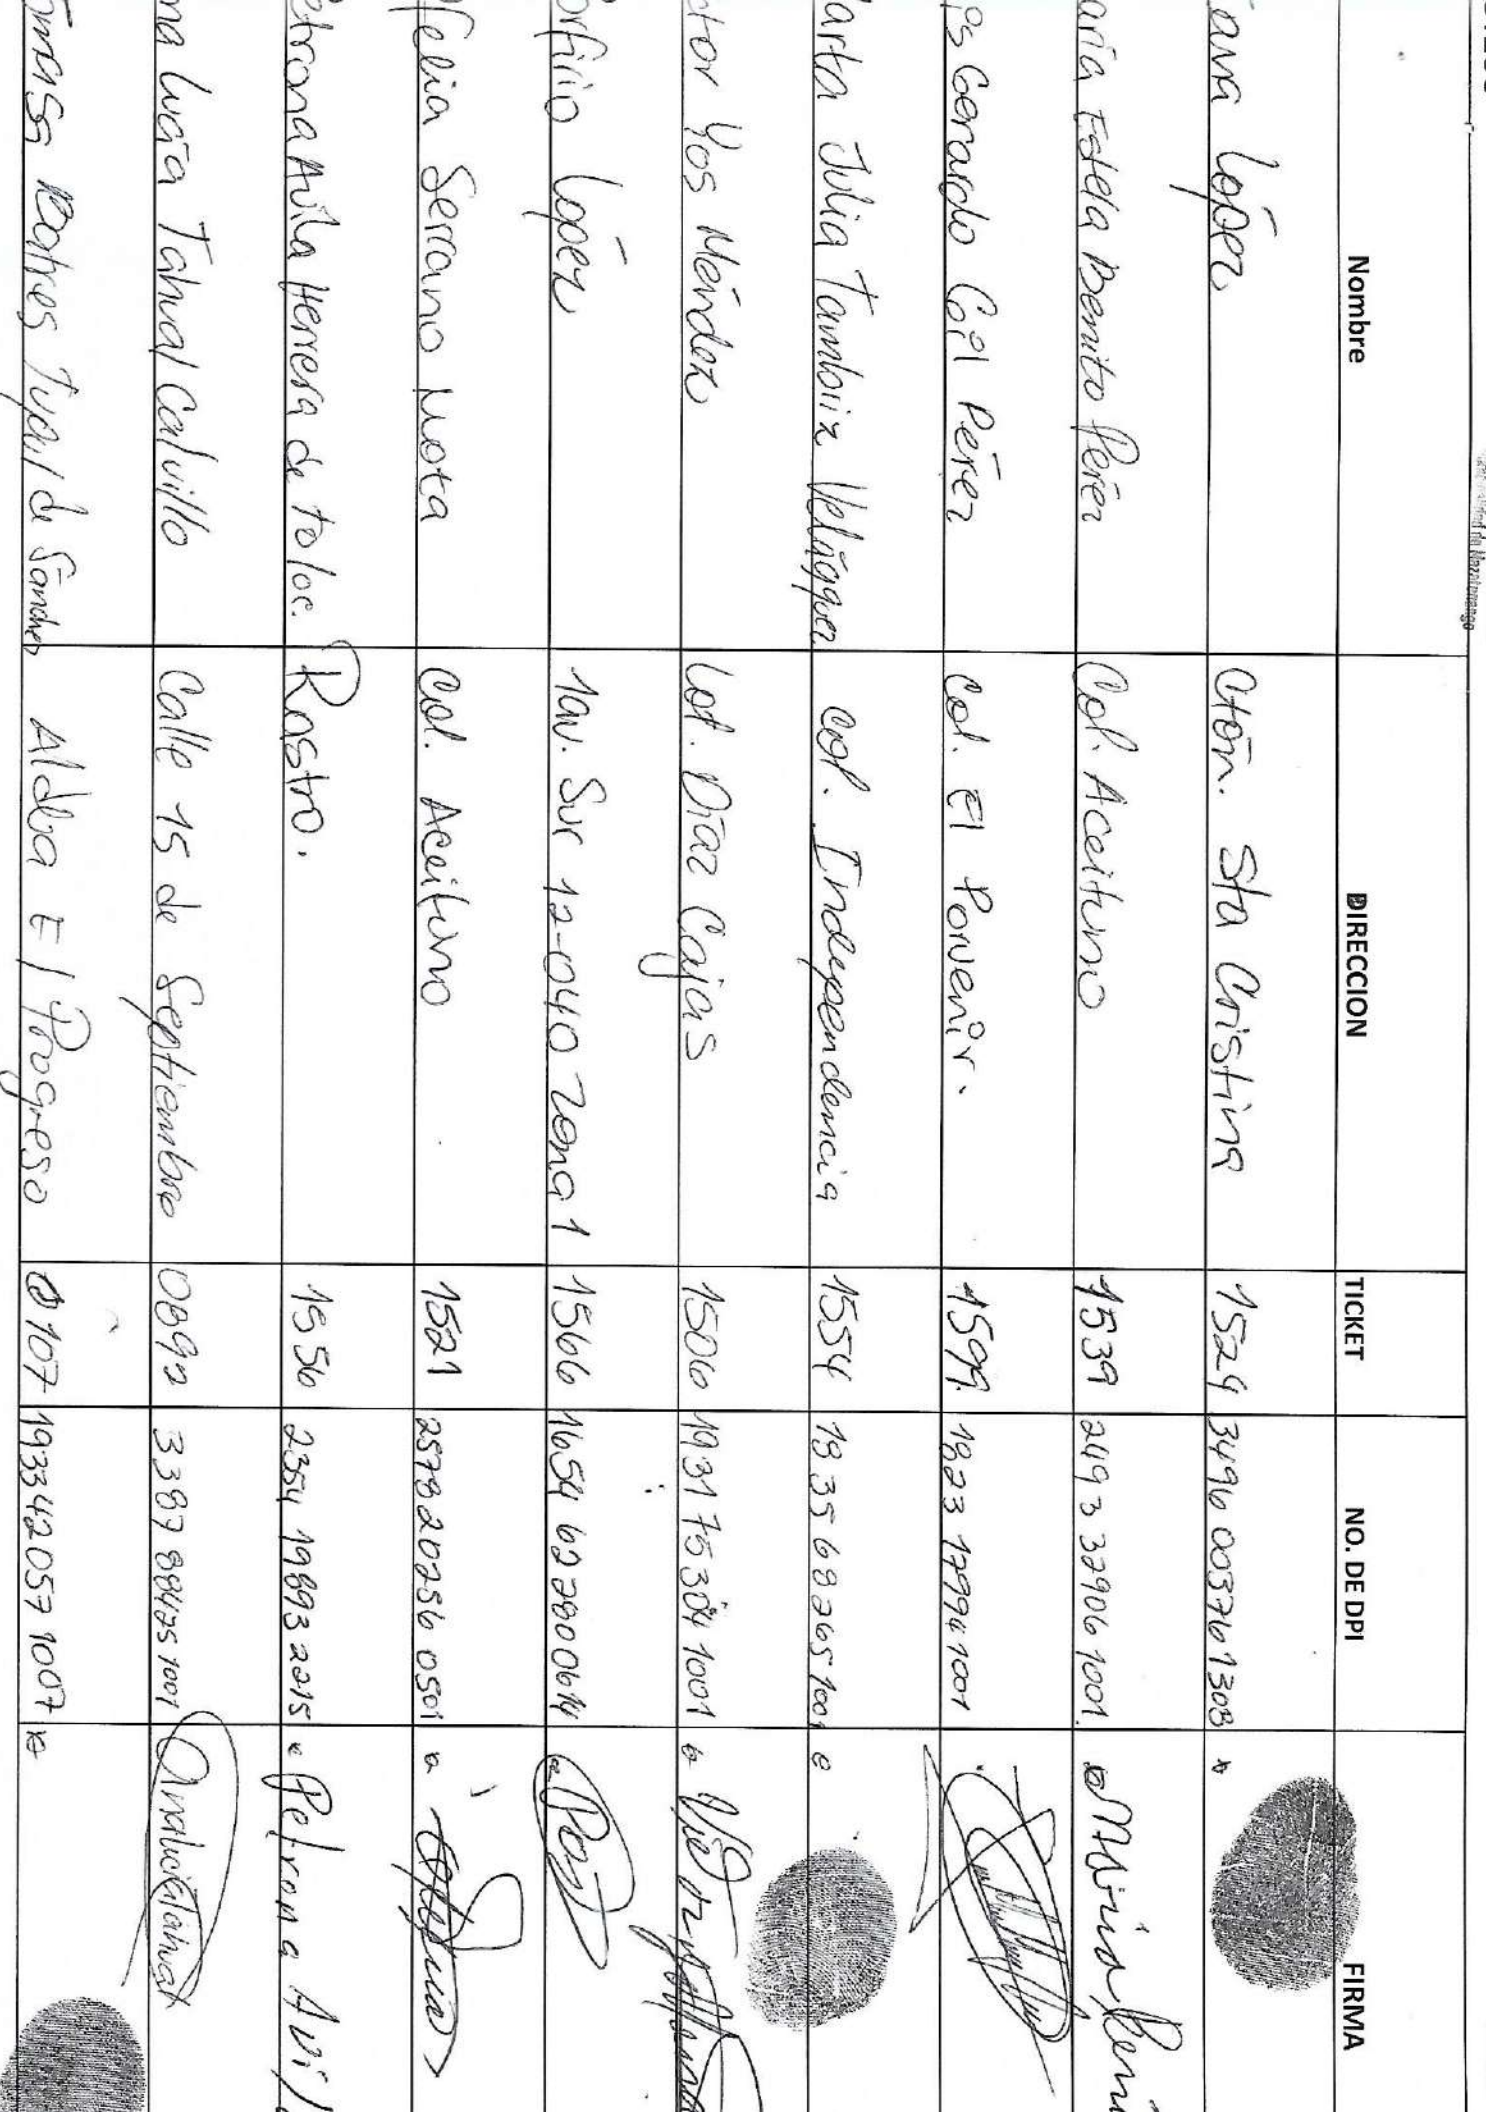 Municipalidad de Mazatenango
Nombre DIRECCION TICKET NO. DE DPI FIRMA
ana López Ctón. Sta Cristina 1524 3496 00376 1308
aría Estela Benito Pérez Col. Aceituno 1539 2493 32906 1001.
s Gerardo Gil Pérez Col. El Porvenir. 1599. 1823 17994 1001
arta Julia Tambriz Velásquez Col. Independencia 1554 1835 68265 1001
ctor Yos Méndez Lot. Díaz Cajas 1506 1931 75304 1001
orfirio López 1av. Sur 12-040 Zona 1 1566 1654 62280 0614
felia Serrano Mota Col. Aceituno 1521 2578 20256 0501
etrona Avila Herrera de toloc. Rastro. 1556 2354 19893 2215 Petrona Avil
na Lucía Tahual Calvillo Calle 15 de Septiembre 0892 3387 88425 1001
omasa Tujuil de Sánchez Aldea El Progreso 0107 1933 42057 1007